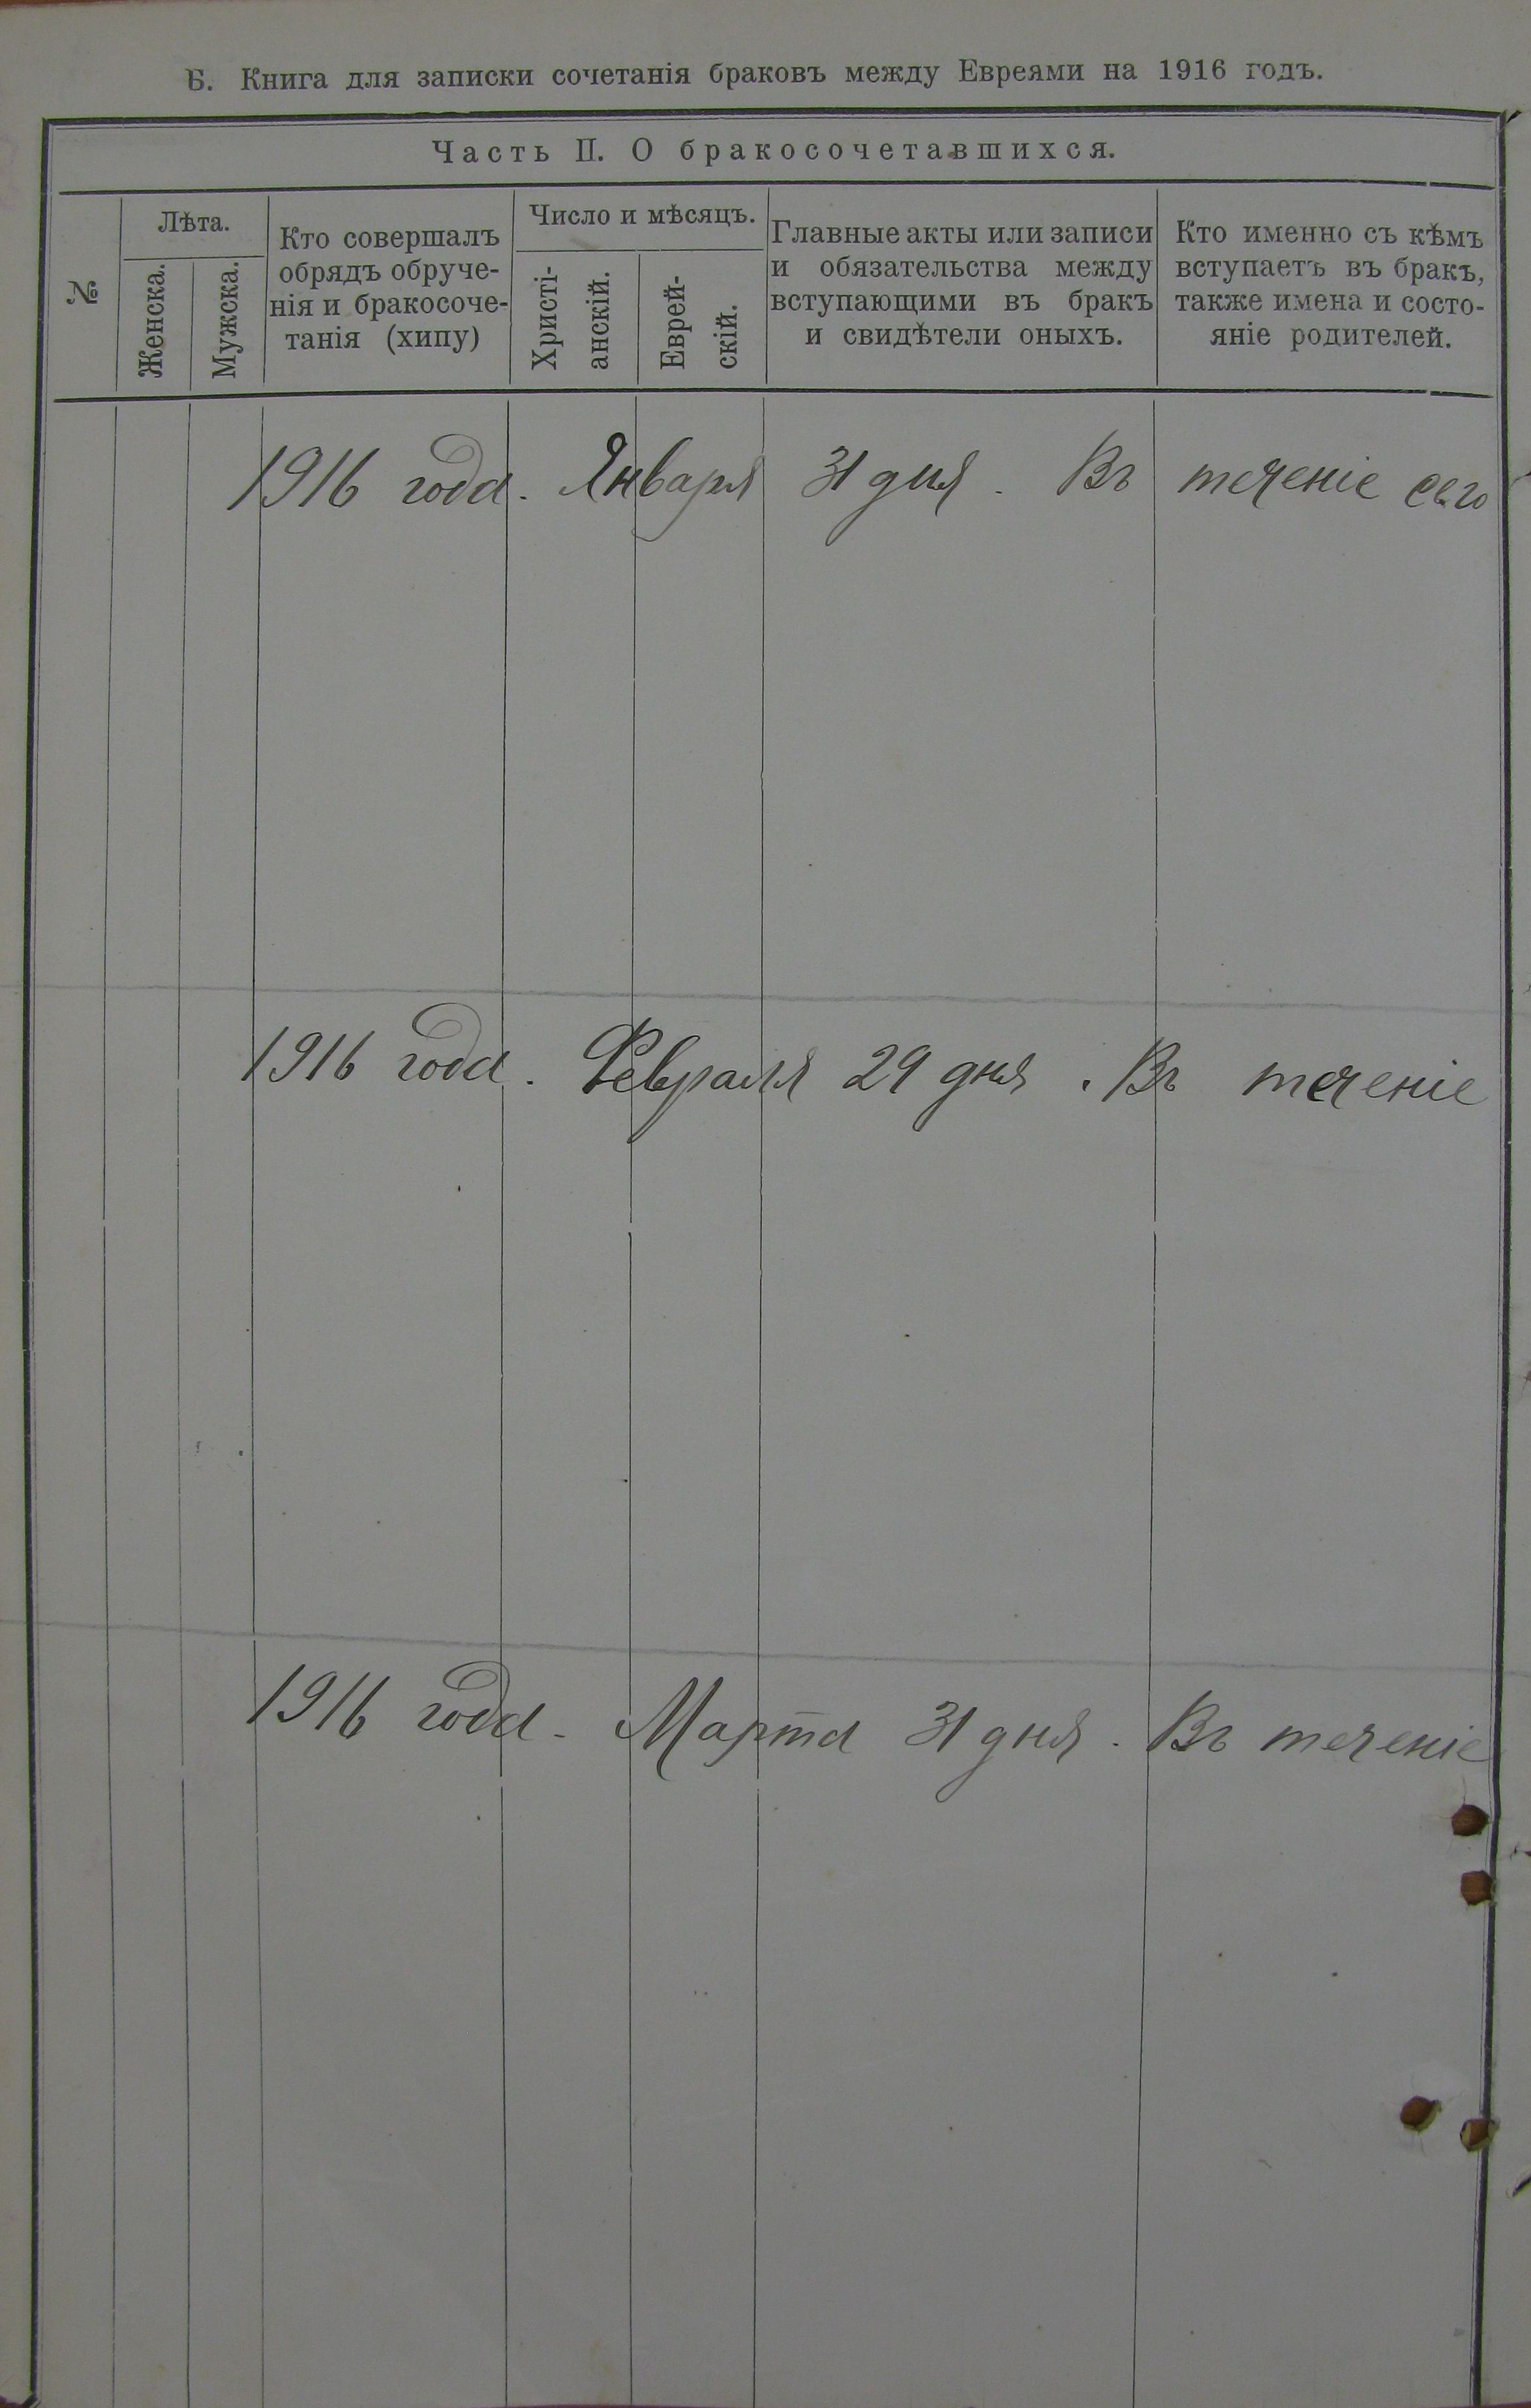 Б. Книга для записки сочетанія браковъ между Евреями на 1916 годъ.
Часть II. О бракосочетавшихся.
№
Лѣта.
Женска.
Мужска.
Кто совершалъ
обрядъ обруче-
нія и бракосоче-
танія (хипу)
Число и мѣсяцъ.
Христі-
анскій.
Еврей-
скій.
Главные акты или записи
и обязательства между
вступающими въ бракъ
и свидѣтели оныхъ.
Кто именно съ кѣмъ
вступаетъ въ бракъ,
также имена и состо-
яніе родителей.
1916 года. Января 31 дня. Въ теченіе сего
1916 года. Февраля 29 дня. Въ теченіе
1916 года. Марта 31 дня. Въ теченіе